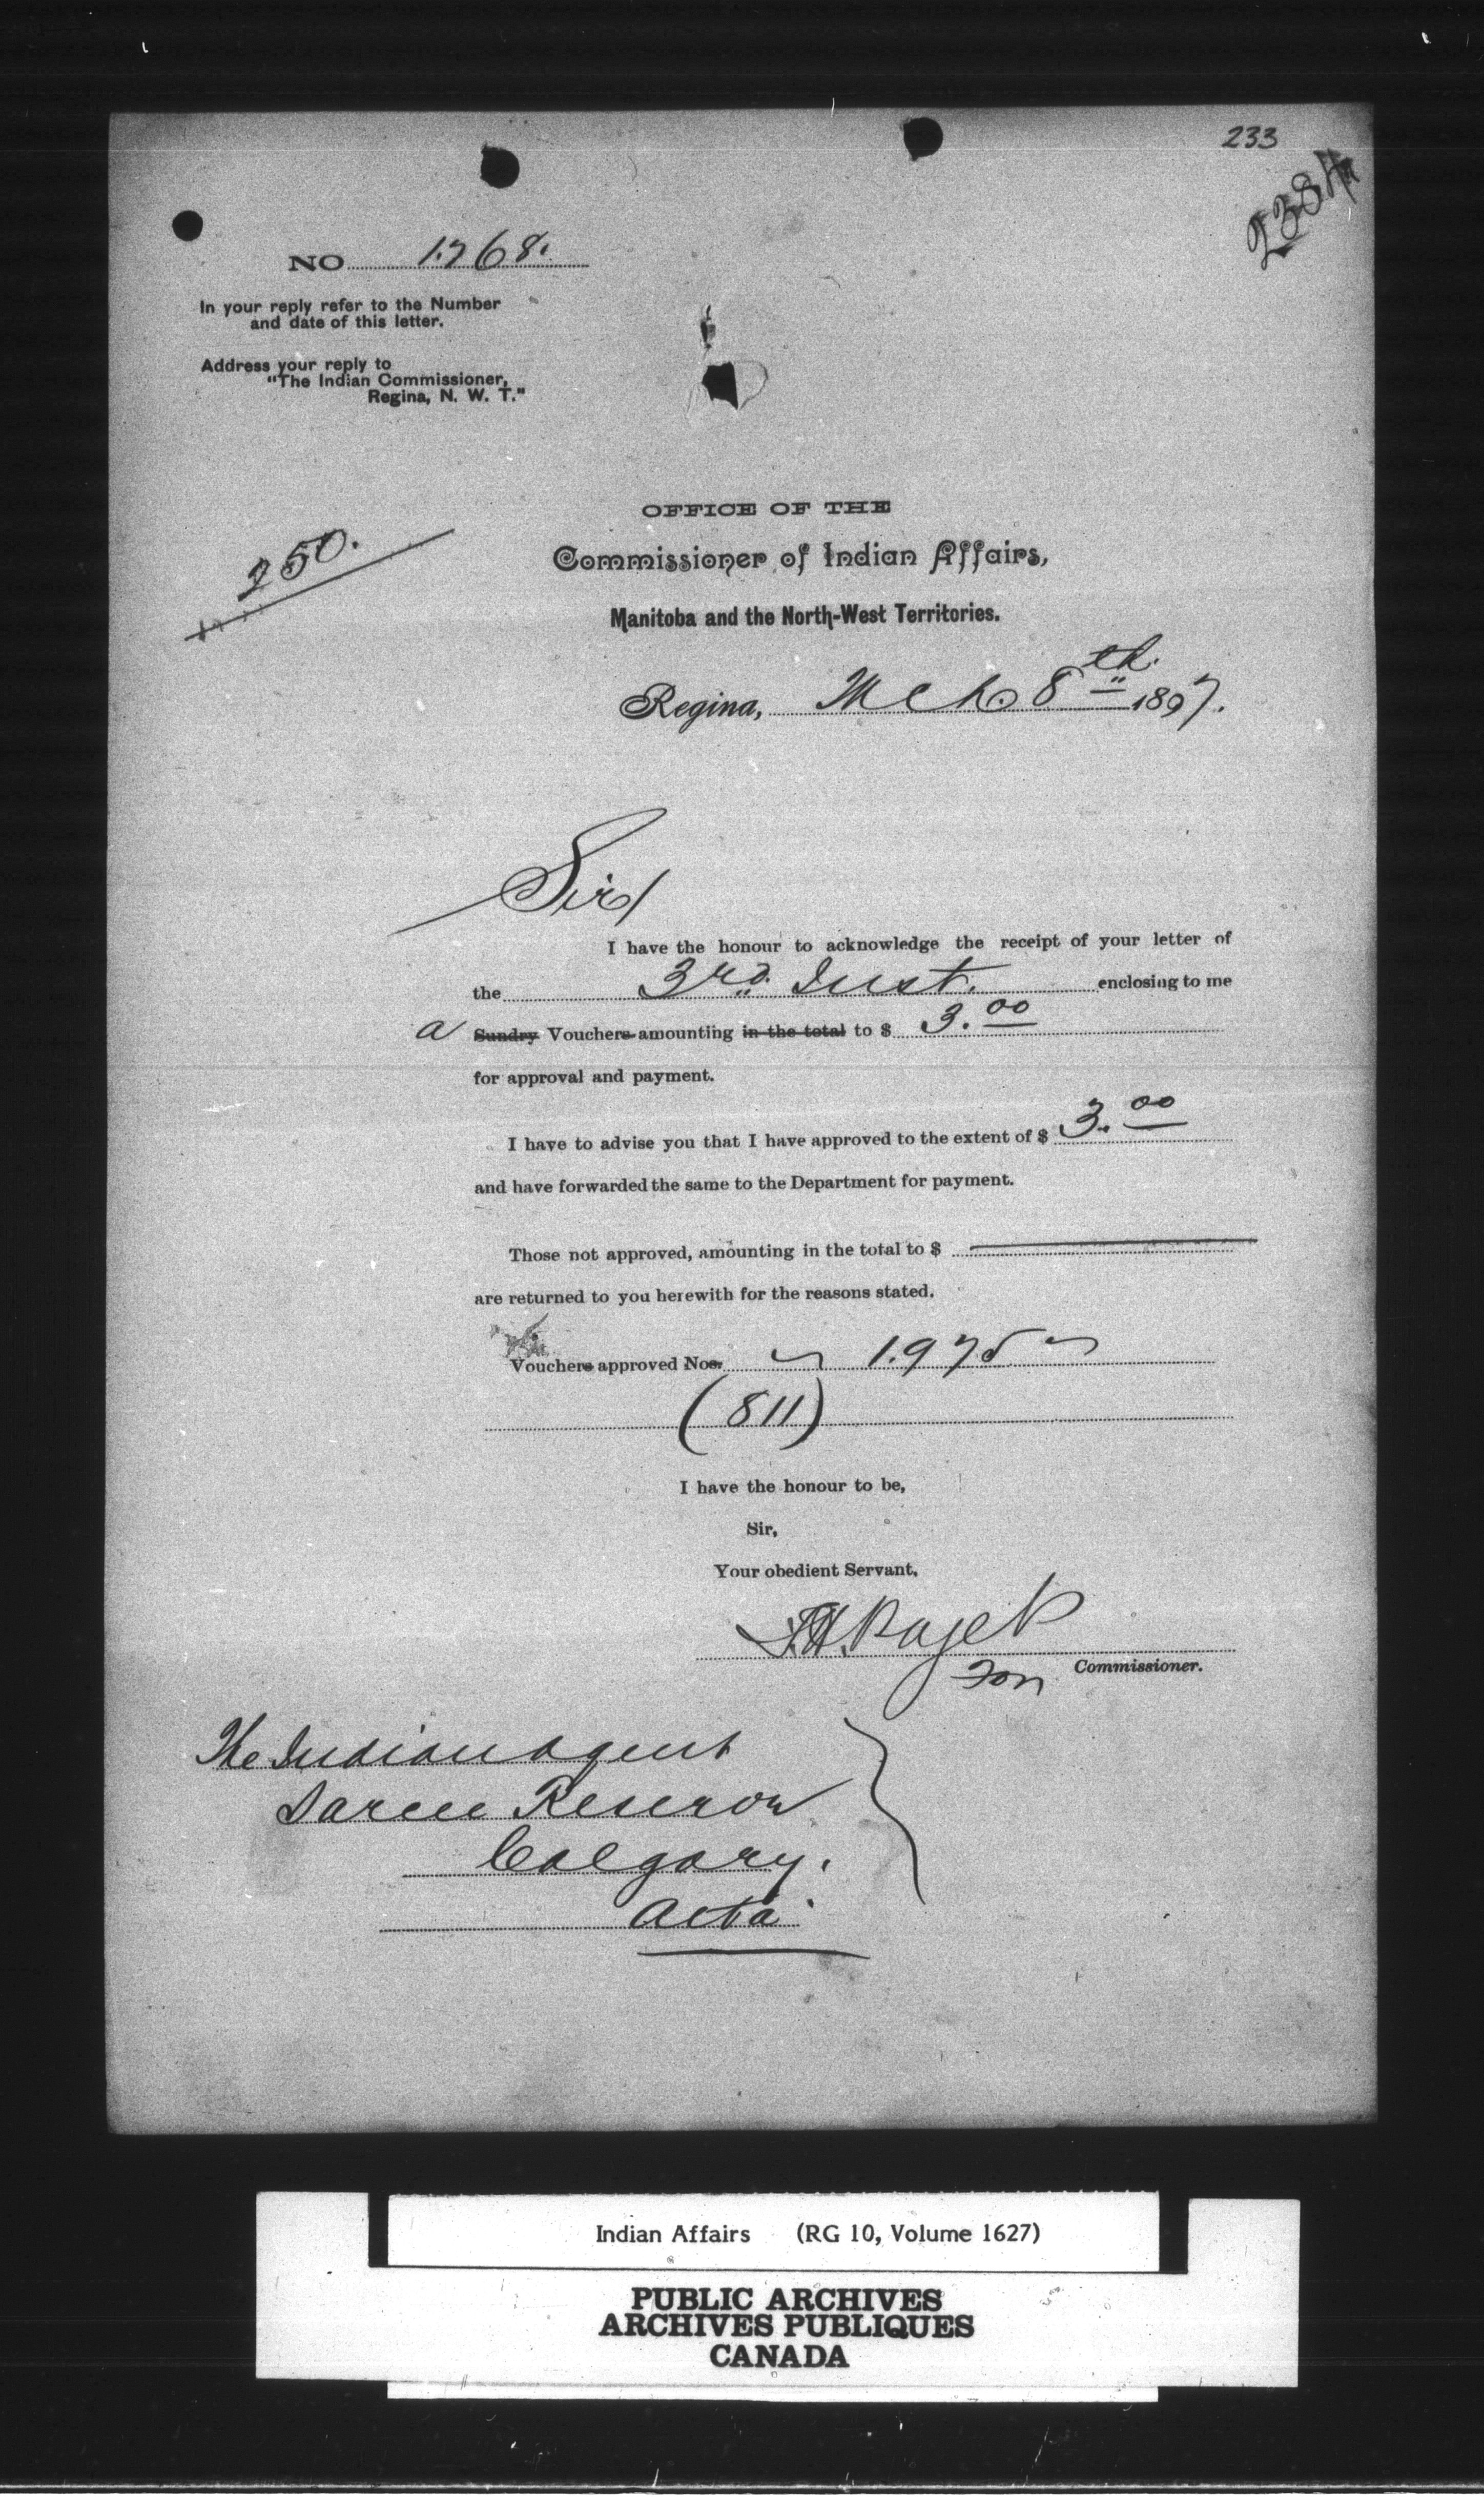 233
2384
NO 1768.
In your reply refer to the Number
and date of this letter.
Address your reply to
"The Indian Commissioner,
Regina, N. W. T."
OFFICE OF THE
250.
Commissioner of Indian Affairs,
Manitoba and the North-West Territories.
Regina, Mch 8th 1897.
Sir/
I have the honour to acknowledge the receipt of your letter of
the 3rd Inst. enclosing to me
a Sundry Vouchers amounting in the total to $ 3.00
for approval and payment.
I have to advise you that I have approved to the extent of $ 3.00
and have forwarded the same to the Department for payment.
Those not approved, amounting in the total to $
are returned to you herewith for the reasons stated.
Vouchers approved Nos. 1975
(811)
I have the honour to be,
Sir,
Your obedient Servant,
F.H. Paget
For Commissioner.
The Indian Agent
Sarcee Reserve
Calgary.
Alta
Indian Affairs (RG 10, Volume 1627)
PUBLIC ARCHIVES
ARCHIVES PUBLIQUES
CANADA